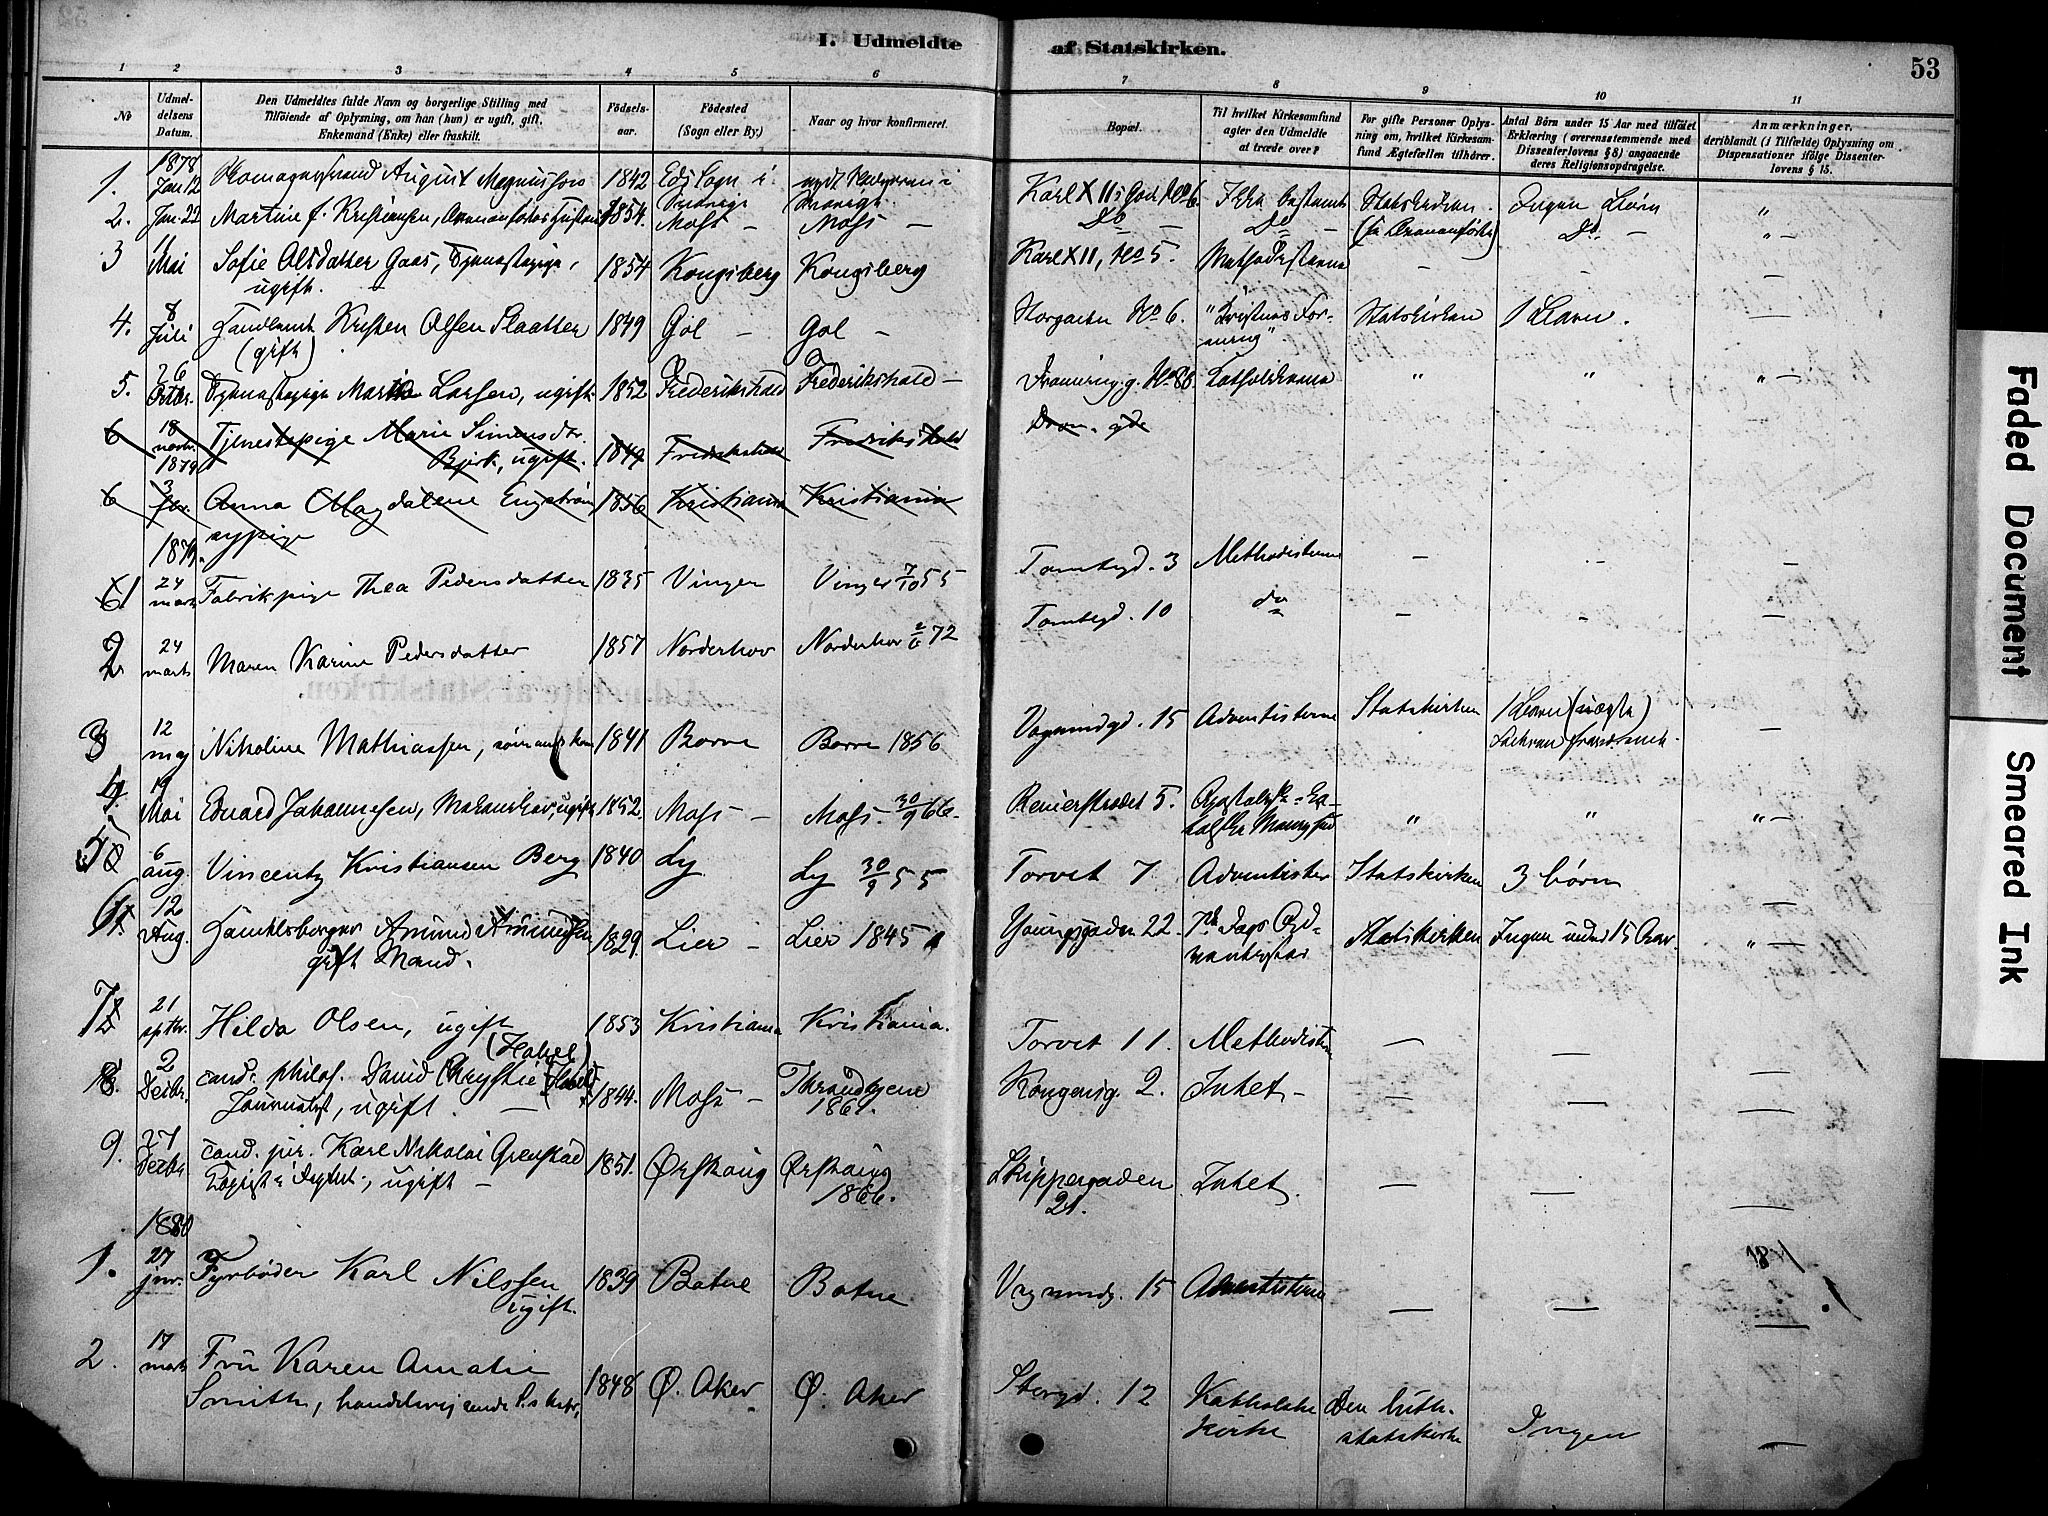 I. Udmeldte af Statskirken.
53
1 2 3 4 5 6 7 8 9 10 11
No
Udmeldelsens Datum.
Den Udmeldtes fulde Navn og borgerlige Stilling med
Tilföiende af Oplysning, om han (hun) er ugift, gift,
Enkemand (Enke) eller fraskilt.
Födselsaar.
Födested
(Sogn eller By.)
Naar og hvor konfirmeret.
Bopæl.
Til hvilket Kirkesamfund
agter den Udmeldte
at træde over?
For gifte Personer Oplysning
om, hvilket Kirkesamfund
Ægtefællen tilhörer.
Antal Börn under 15 Aar med tilföiet
Erklæring (overensstemmende med
Dissenterlovens § 8) angaaende
deres Religionsopdragelse.
Anmærkninger,
deriblandt (i Tilfælde) Oplysning om
Dispensationer ifölge Dissenterlovens
§ 15.
1878
1. Jan. 12 August Magnusson 1842 Eds Sogn i Karl XII s Gade No 6. Statskirken Ingen Börn "
2. Jan. 22 Martine f. Kristiansen, 1854. Moss – Moss – Do – Do – Do – " –
3 Mai Sofie Olsdatter Gaas, Tjenestepige, 1854 Kongsberg Kongsberg Karl XII, No 5. Methodisterne – – –
ugift.
4. 8 Juli Kristen Olsen Slaatten 1849 Gol – Gol – Storgaden No 6. "Kristnes For- Statskirken 1 Barn. –
(gift) ening"
5. 26 Octbr. Tjenestepige Maria Larsen, ugift. 1852 Frederikshald Frederikshald – No 88. Katholikerne " " " –
6 18 novbr. Tjenestepige Marie Simensdtr. 1849 Fredrikshald Fredrikshald Dron. gde
1879 Bjerk, ugift.
6 3 Anna Magdalene Engström 1856 Kristiania Kristiania
sypige
1879.
1 24 marts Fabrikpige Thea Pedersdatter 1835 Vinger Vinger 7/10 55 Tomtegd. 3 Methodisterne – – –
2 24 marts Maren Karine Pedersdatter 1857 Norderhov Norderhov 2/6 72 Tomtegd. 10 do – – –
3 12 maj Nikoline Mathiassen, 1841 Borre Borre 1856 Vognmdgd. 15 Adventisterne Statskirken 1 Barn (uægte) –
4. 19 Mai Eduard Johannesen, ugift 1852. Moss – Moss. 30/9 66. Reuierstrædet 5. " " " –
5 6 aug. Vincentz Kristiansen Berg 1840. Ly Ly 30/9 55 Torvet 7 Adventister Statskirken 3 börn –
6. 12 Aug. Handelsborger Amund Amundsen 1829. Lier – Lier 1845 Youngsgaden 22. 7de Dags Ad- Statskirken Ingen under 15 Aar. " –
gift Mand. ventister
7 21 sptbr. Hilda Olsen, ugift 1853 Kristiania Kristiania. Torvet 11. Methodisterne – – –
8. 2 Decbr. cand. philos. David Chrystie (Hakel) 1844. Moss – Throndhjem Kongensg. 2. Intet – – – –
Journalist, ugift. – 1861.
9. 27 Decbr. cand. jur. Karl Nikolai Grenstad 1851. Ørskoug Ørskoug Skippergaden Intet. – – –
ugift – 1866. 21.
1880
1. 27 jnr. Fyrbøder Karl Nilssen 1839 Botne Botne Vognmdg. 15 Adventisterne – – –
ugift.
2. 17 marts Fru Karen Amalie 1848 Ø. Aker Ø. Aker Storgd. 12 Katholske Den luth. Ingen –
Smith, kirke statskirke
Faded Document
Smeared Ink